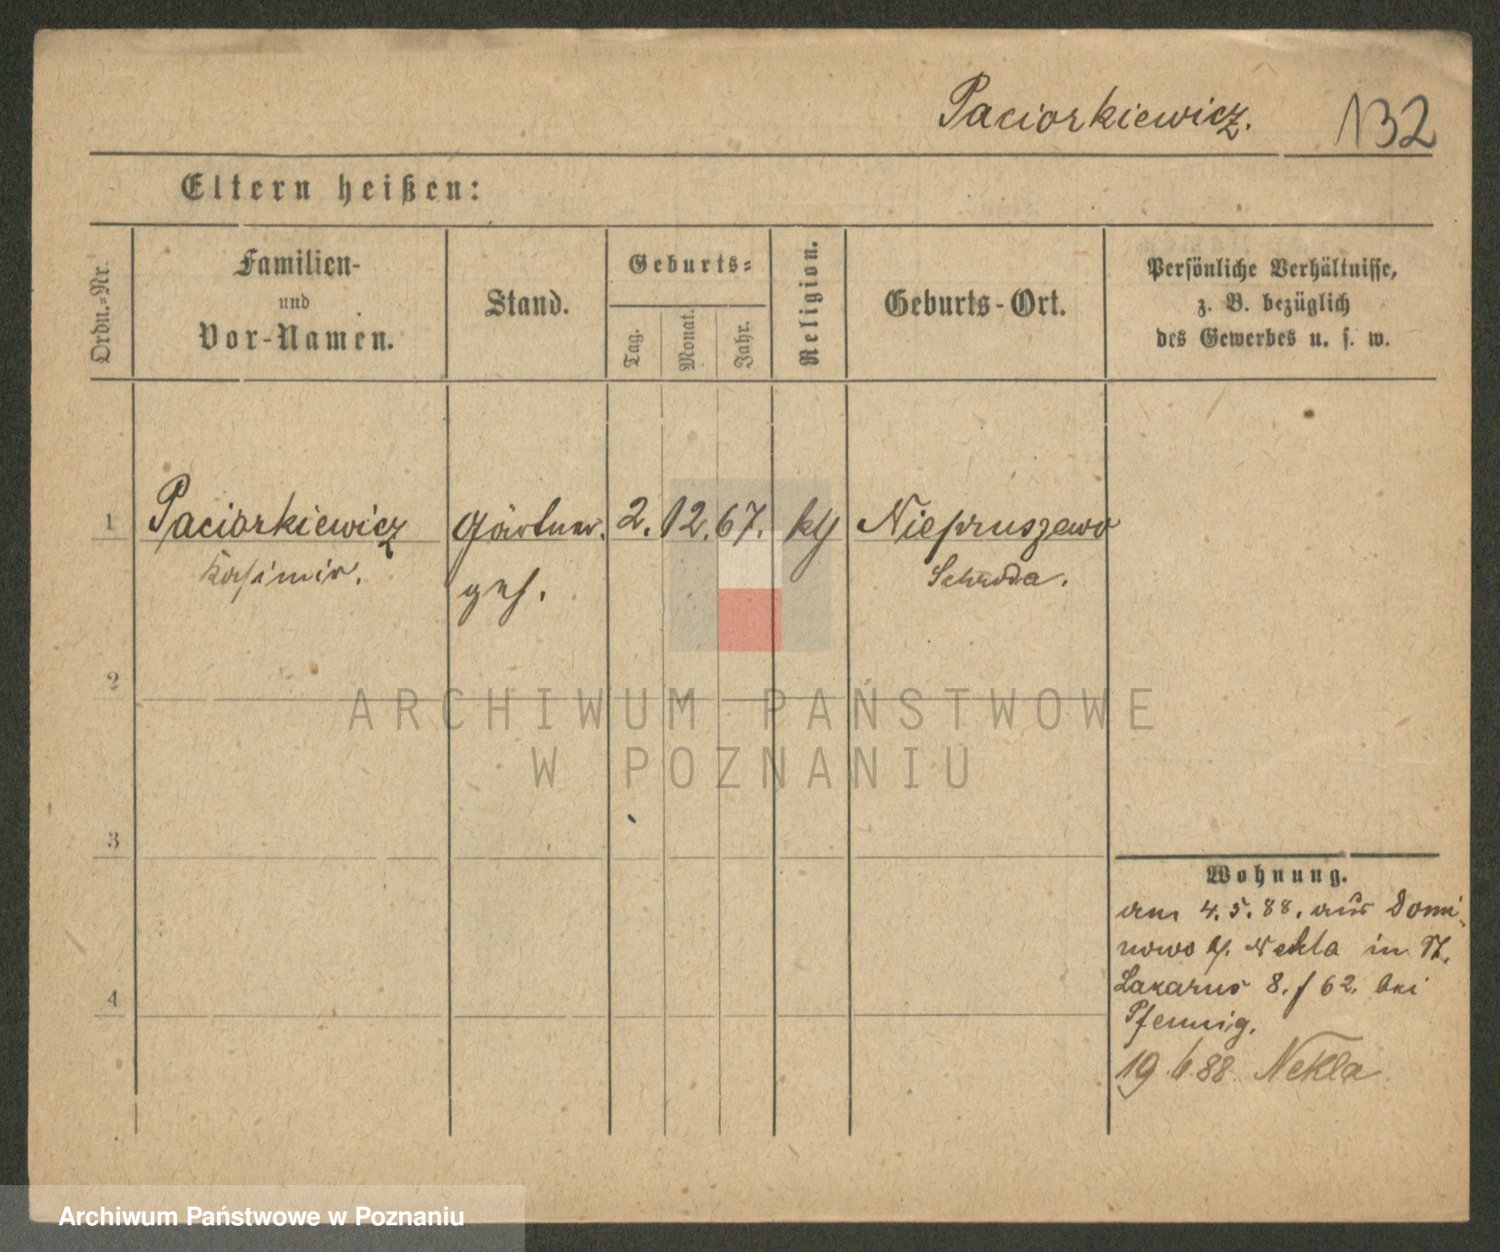 Paciorkiewicz. 132
Eltern heißen:
Ordn.-Nr.
Familien-
und
Vor-Namen.
Stand.
Geburts-
Tag.
Monat.
Jahr.
Religion.
Geburts-Ort.
Persönliche Verhältnisse,
z. B. bezüglich
des Gewerbes u. s. w.
1 Paciorkiewicz Gärtner. 2. 12. 67. Niepruszewo
Kasimir. Schroda.
2
3
4
Wohnung.
am 4. 5. 88. aus Domi-
nowo Nekla in St.
Lazarus 8. 62. bei
Pfennig.
19. 88 Nekla
ARCHIWUM PAŃSTWOWE
W POZNANIU
Archiwum Państwowe w Poznaniu